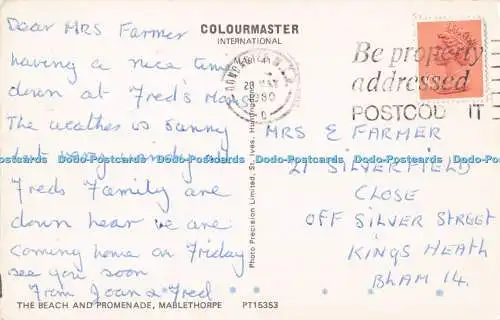 Dear MRS Farmer
having a nice time
down at Fred's Mam's
The weather is sunny
but very windy
Freds Family are
down hear we are
coming home on Friday
see you soon
From Joan & Fred
THE BEACH AND PROMENADE, MABLETHORPE PT15353
COLOURMASTER
INTERNATIONAL
Photo Precision Limited, St. Ives, Huntingdon
1980
Be properly
addressed
POSTCOD IT
MRS E FARMER
21 SILVERFIELD
CLOSE
OFF SILVER STREET
KINGS HEATH
BHAM 14.
Dodo-Postcards Dodo-Postcards Dodo-Postcards Dodo-Postcards Dodo-Postcards Dodo-Postcards